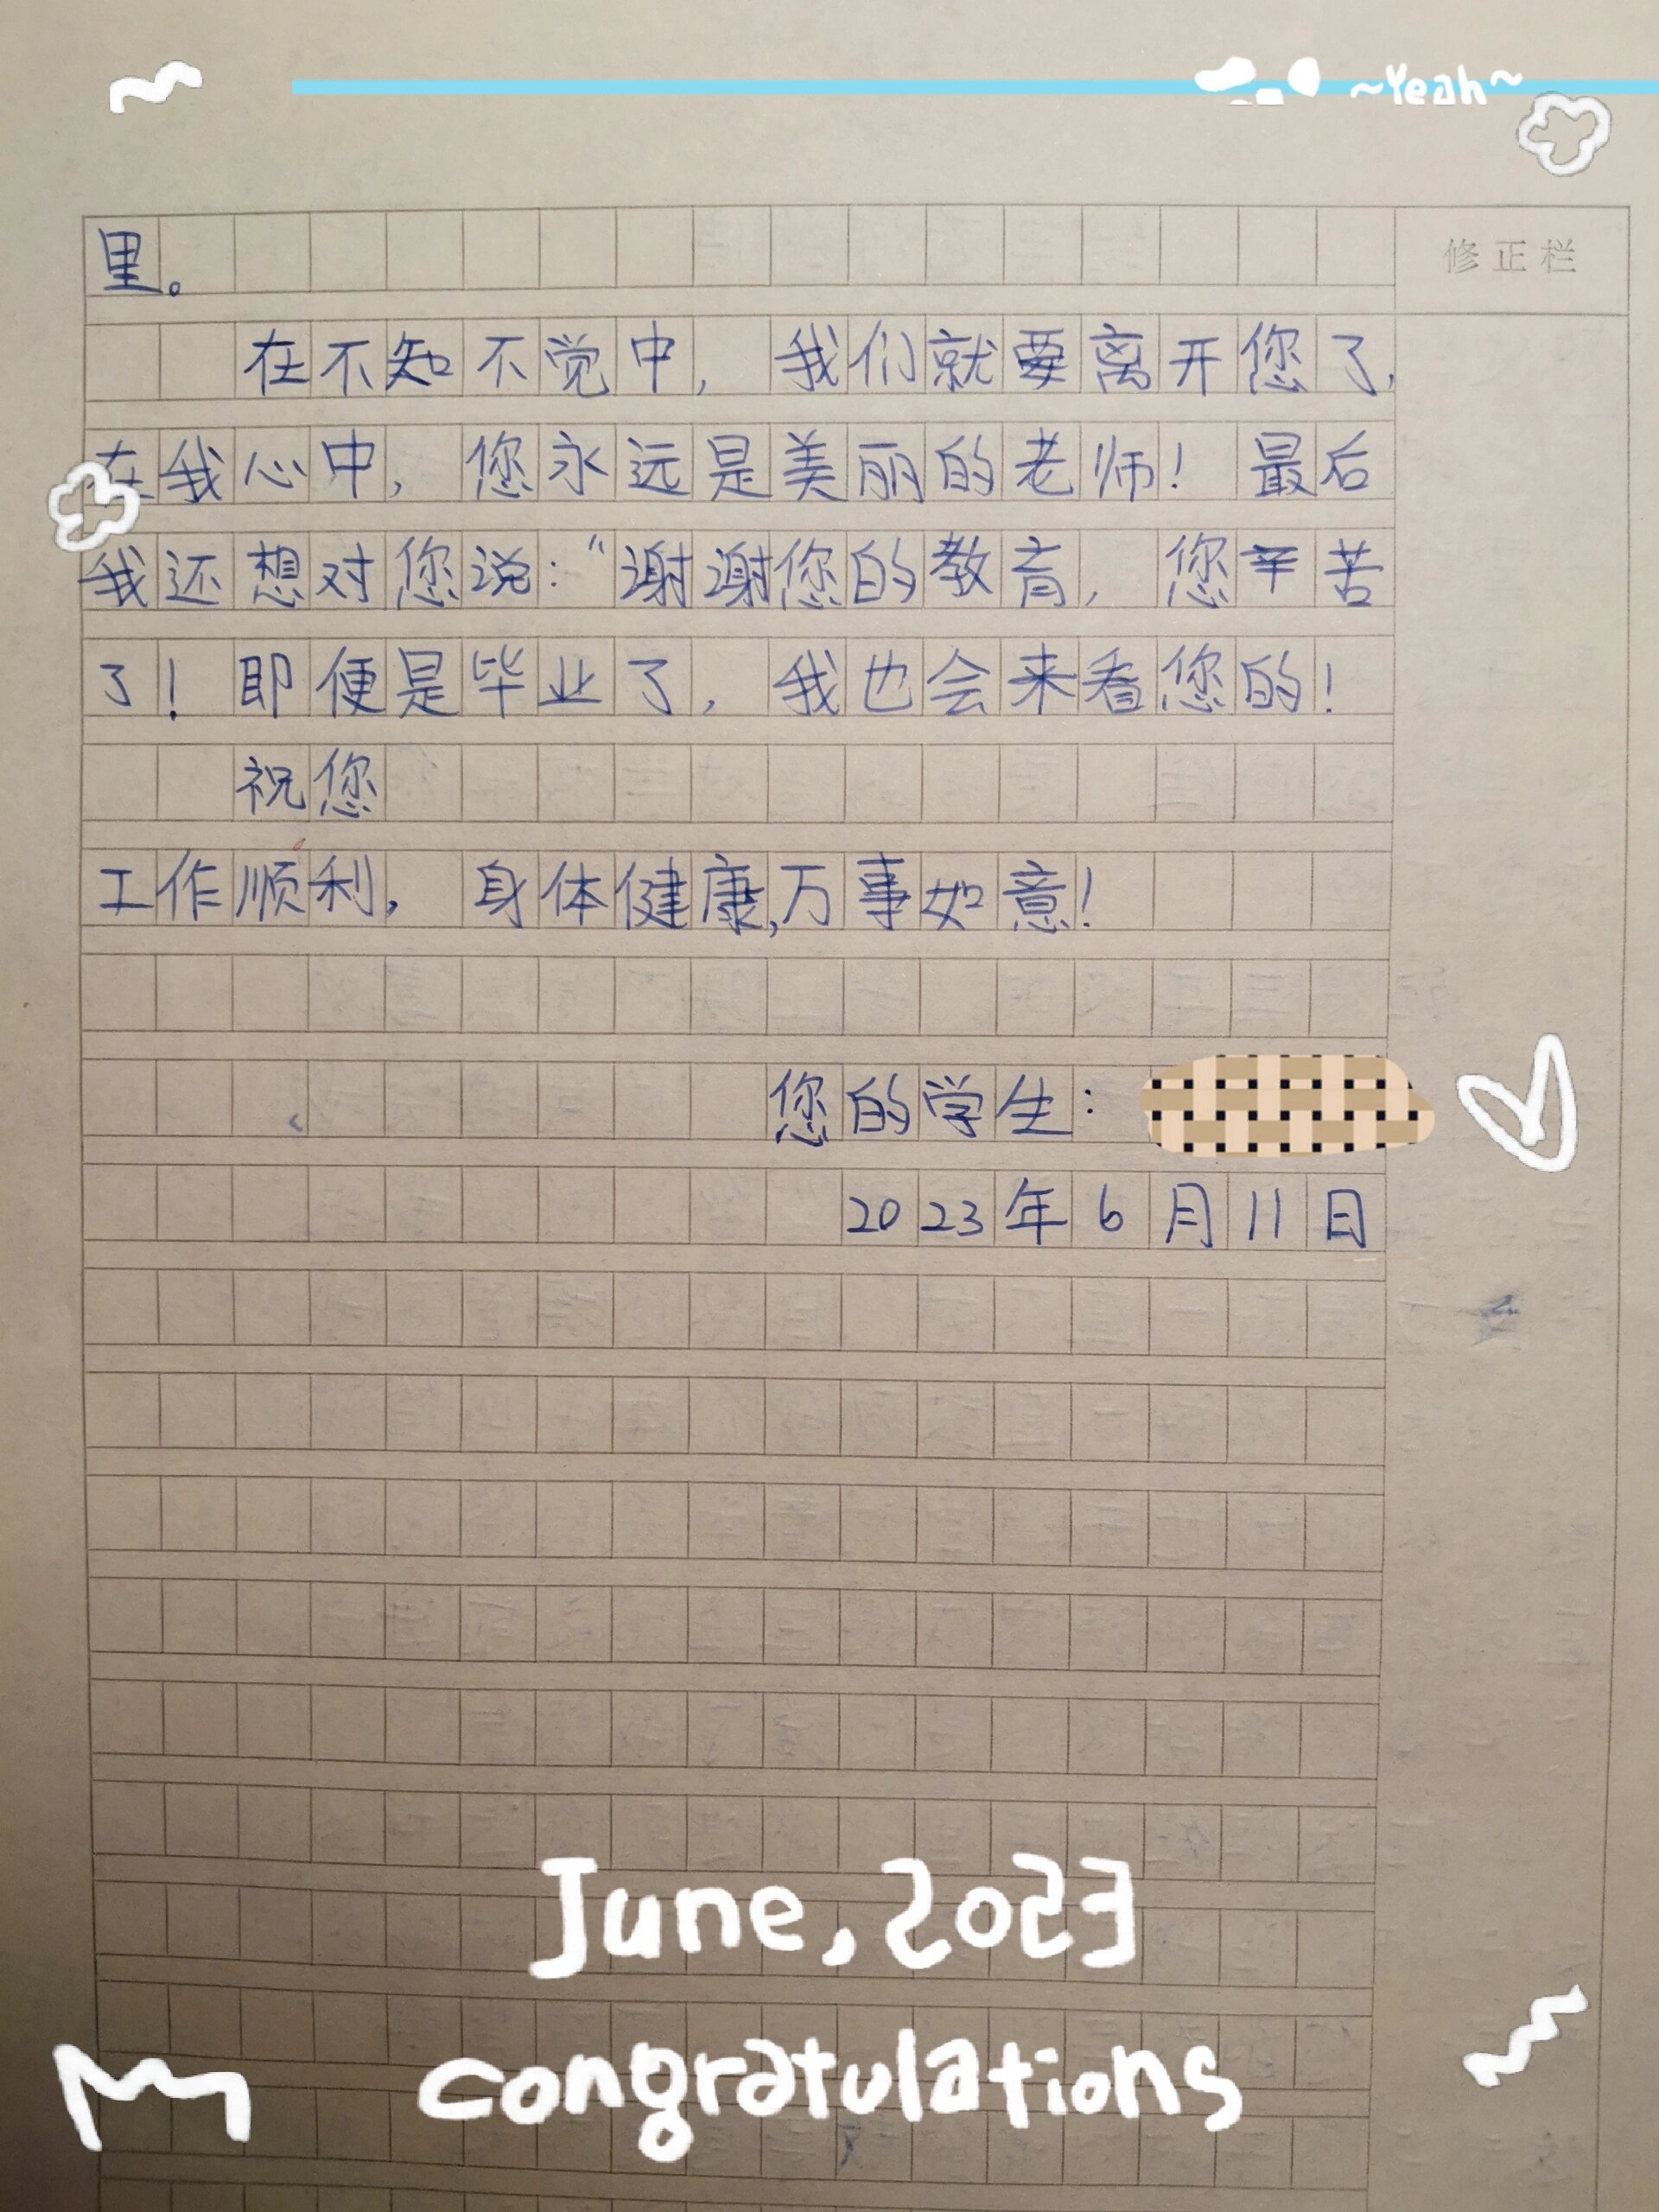 ~Yeah~
修正栏
里。
在不知不觉中，我们就要离开您了，
在我心中，您永远是美丽的老师！最后
我还想对您说：“谢谢您的教育，您辛苦
了！即便是毕业了，我也会来看您的！
祝您
工作顺利，身体健康,万事如意！
您的学生：
2023年6月11日
June,2023
congratulations